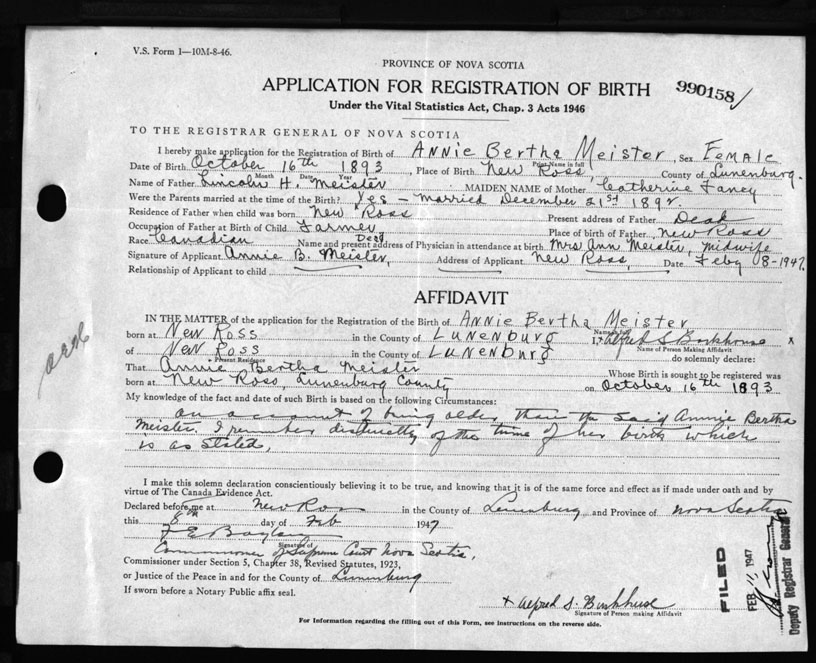 V.S. Form 1—10M-8-46.
PROVINCE OF NOVA SCOTIA
APPLICATION FOR REGISTRATION OF BIRTH
990158
Under the Vital Statistics Act, Chap. 3 Acts 1946
TO THE REGISTRAR GENERAL OF NOVA SCOTIA
I hereby make application for the Registration of Birth of Annie Bertha Meister, Sex Female
Print Name in full
Date of Birth October 16th 1893, Place of Birth New Ross, County of Lunenburg.
Month Date Year
Name of Father Lincoln H. Meister MAIDEN NAME of Mother Catherine
Were the Parents married at the time of Birth? Yes - Married December 21st 1892.
Residence of Father when child was born New Ross Present address of Father Dead
Occupation of Father at Birth of Child Farmer, Place of birth of Father New Ross
Race Canadian Name and present address of Physician in attendance at birth Dead Mrs Ann Meister, midwife
Signature of Applicant Annie B. Meister, Address of Applicant New Ross, Date Feby 8-1947.
Relationship of Applicant to child
AFFIDAVIT
IN THE MATTER of the application for the Registration of the Birth of Annie Bertha Meister
Name in full
born at New Ross in the County of Lunenburg I, Alfred S Borkhouse x
Name of Person Making Affidavit
of New Ross in the County of Lunenburg do solemnly declare:
Present Residence
That Annie Bertha Meister Whose Birth is sought to be registered was
born at New Ross, Lunenburg County on October 16th 1893
My knowledge of the fact and date of such Birth is based on the following Circumstances:
on account of being older than the said Annie Bertha
Meister. I remember distinctly of the time of her birth which
is as stated.
I make this solemn declaration conscientiously believing it to be true, and knowing that it is of the same force and effect as if made under oath and by
virtue of The Canada Evidence Act.
Declared before me at New Ross in the County of Lunenburg and Province of Nova Scotia
this 8th day of Feb 1947
F E
Signature of
Commissioner of Supreme Court Nova Scotia,
Commissioner under Section 5, Chapter 38, Revised Statutes, 1923,
or Justice of the Peace in and for the County of Lunenburg
If sworn before a Notary Public affix seal.
x Alfred S. Borkhouse
Signature of Person making Affidavit
For Information regarding the filling out of this Form, see instructions on the reverse side.
FILED
FEB 11 1947
Deputy Registrar General